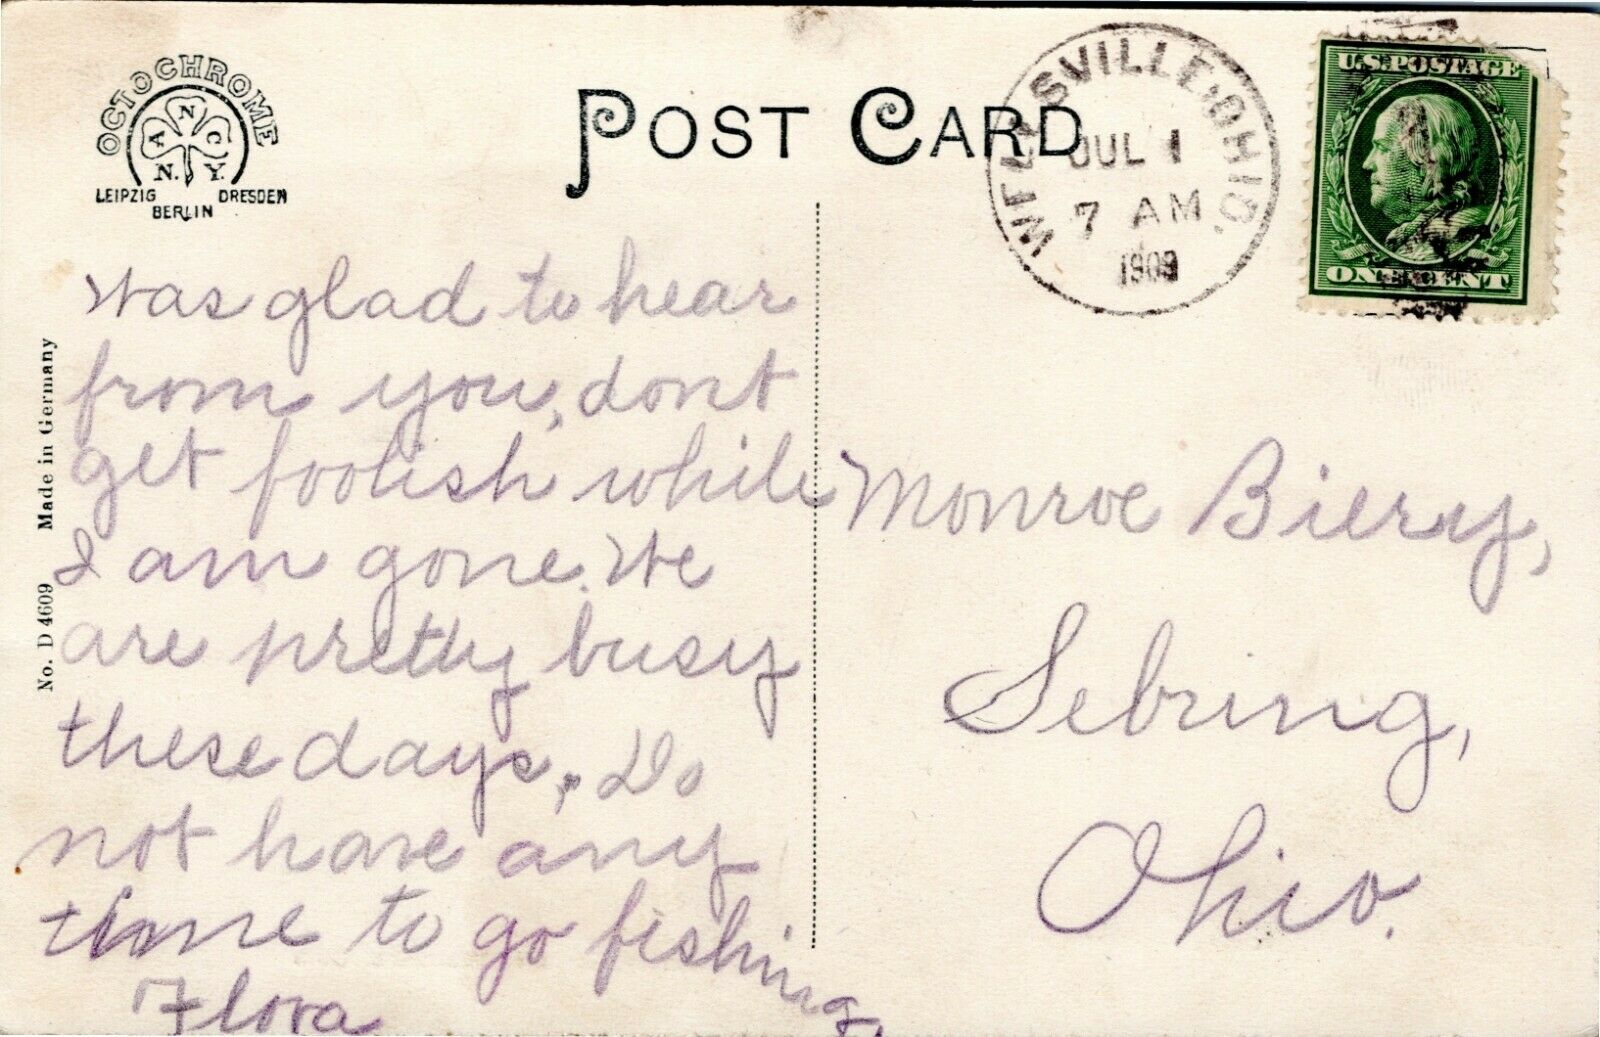 OCTOCHROME
N.
A
N
C
Y.
LEIPZIG
DRESDEN
BERLIN
POST CARD
JUL 1
7 AM
1909
U.S. POSTAGE
ONE CENT
No. D 4609 Made in Germany
Was glad to hear
from you, dont
get foolish while
I am gone. We
are pretty busy
these days. Do
not have any
time to go fishing.
Flora
Monroe Biery,
Sebring,
Ohio.